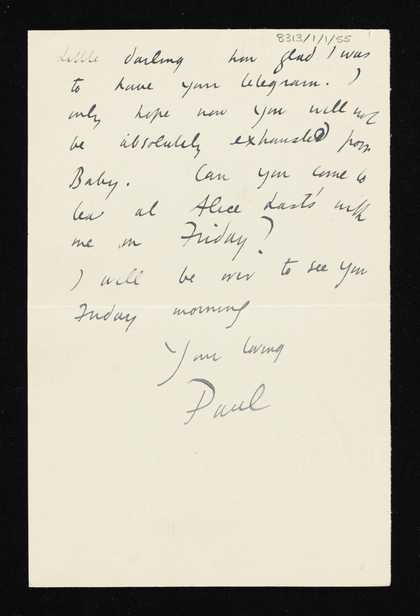 8313/1/1/55
Little darling how glad I was
to have your telegram. I
only hope now you will not
be absolutely exhausted poor
Baby. Can you come to
tea at Alice with
me on Friday?
I will be over to see you
Friday morning
Your loving
Paul